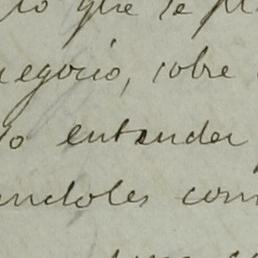 lo que se
negocio, sobre
entender
endoles com